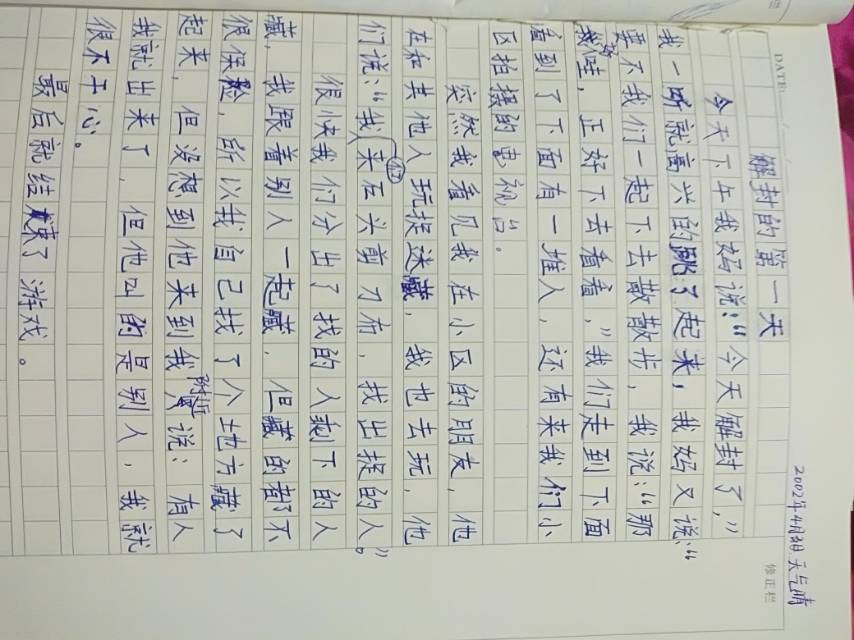 DATE
2002年4月3日 天气晴
修正栏
解封的第一天
今天下午我妈说：“今天解封了，”
我一听就高兴的跳了起来，我妈又说：“
要不我们一起下去散散步，我说：“那
我俩，正好下去看看，”我们走到下面
看到了下面有一堆人，还有来我们小
区拍摄的电视台。
突然我看见我在小区的朋友，他
在和其他人玩捉迷藏，我也去玩，他
们说：“我们来石头剪刀布，找出捉的人”。
很快我们分出了找的人剩下的人
藏，我跟着别人一起藏，但藏的都不
很保险，所以我自己找了个地方藏了
起来，但没想到他来到我附近说：有人
我就出来了，但他叫的是别人，我就
很不开心。
最后就结束了游戏。